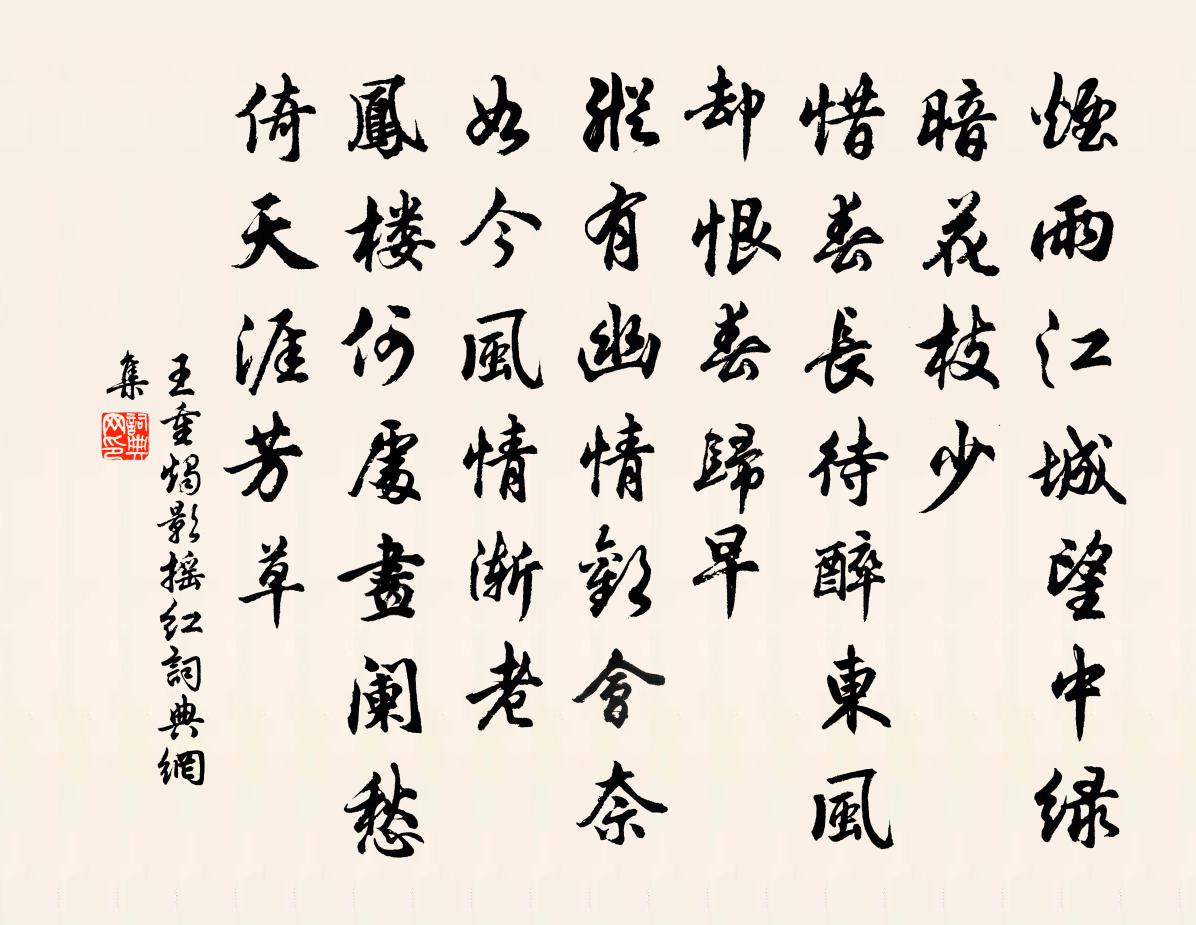 煙雨江城望中緑
暗花枝少
惜春長待醉東風
却恨春歸早
縱有幽情歡會奈
如今風情漸老
鳳楼何處畫闌愁
倚天涯芳草
王重燭影摇红詞典網
集
詞典网印